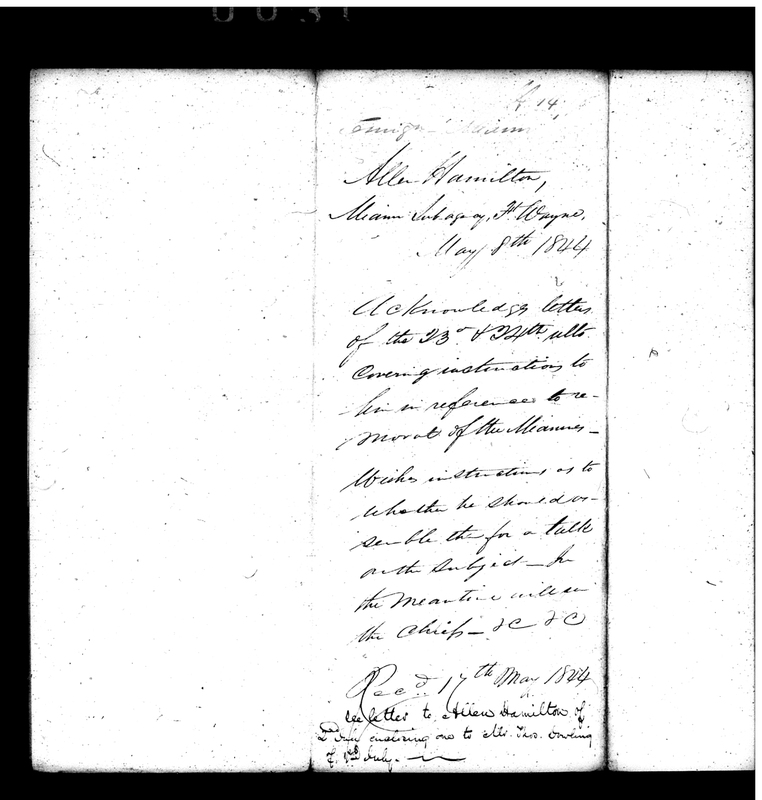 0031
H 14,
Emign Miami
Allen Hamilton,
Miami Subagcy, Ft Wayne,
May 8th 1844
Acknowledges letters
of the 23d & 24th ulto
covering instructions to
him in reference to re-
moval of the Miamies –
Wishes instructions as to
whether he should as-
semble the for a talk
on the subject – In
the meantime will see
the Chiefs – &C &C
Recd. 17th May 1844
see letter to Allen Hamilton of
2d July enclosing one to Mr. Thos. Dowling
of July.